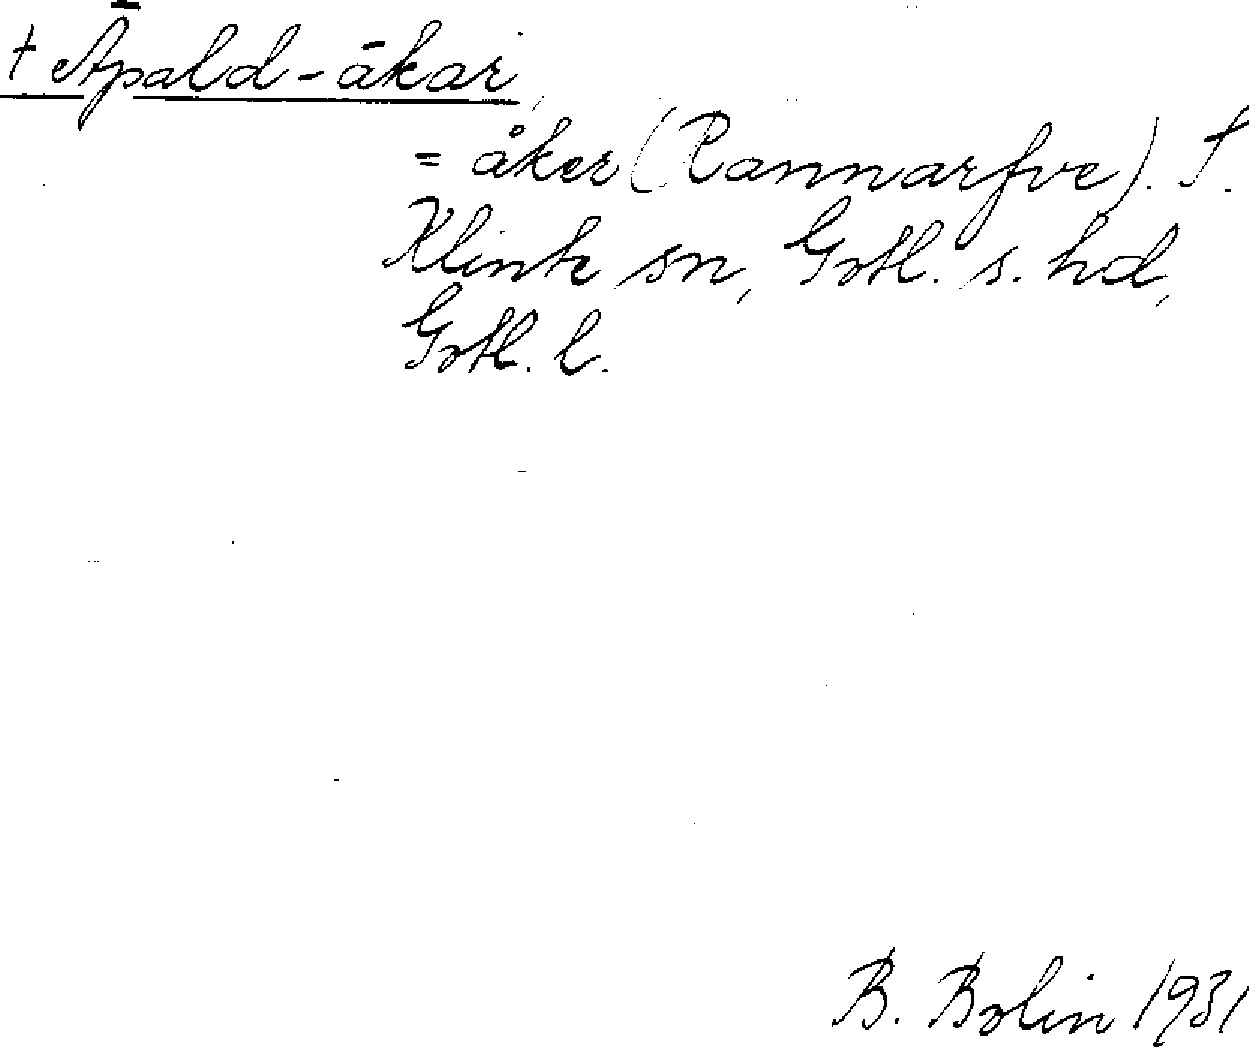 † Āpald-ākar
= åker (Rannarfve). †.
Klinte sn, Gotl. s. hd,
Gotl. l.
B. Bolin 1931